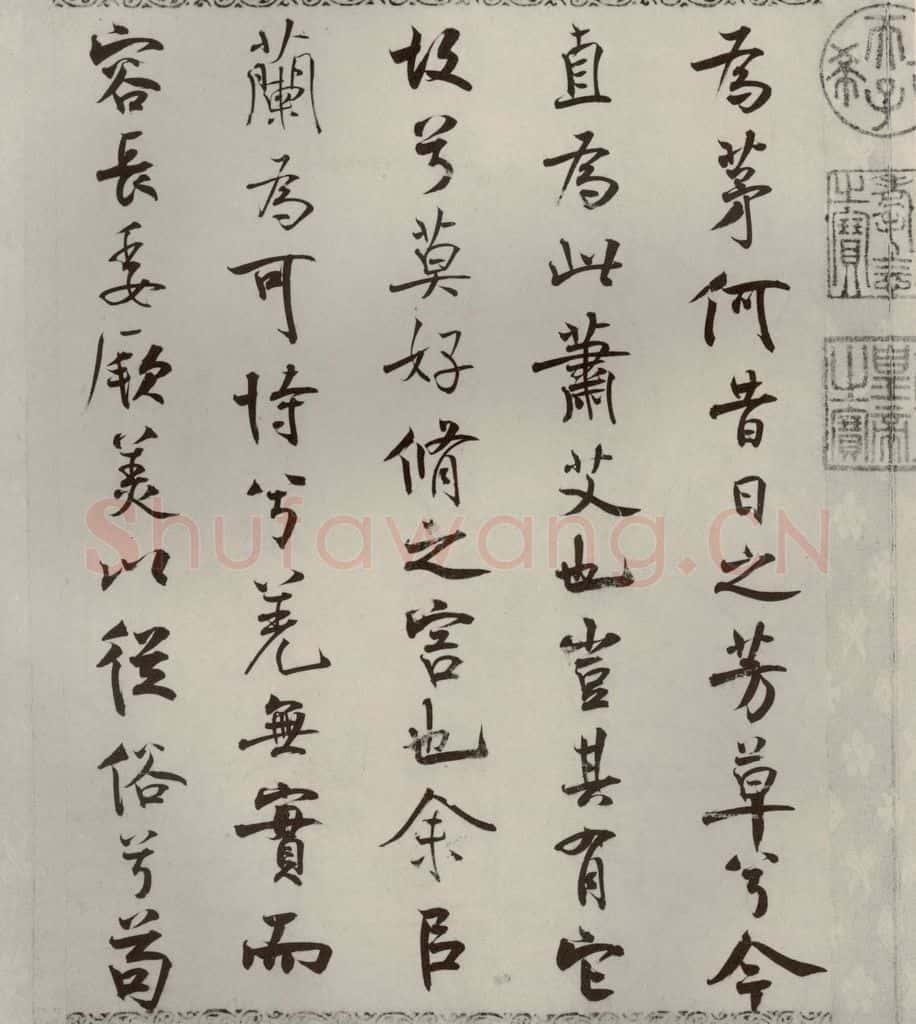 為茅何昔日之芳草兮今
直為此蕭艾也豈其有它
故兮莫好脩之害也余㠯
蘭為可恃兮羌無實而
容長委厥美以從俗兮苟
天子
希
之寶
皇帝
之寶
Shufawang.CN